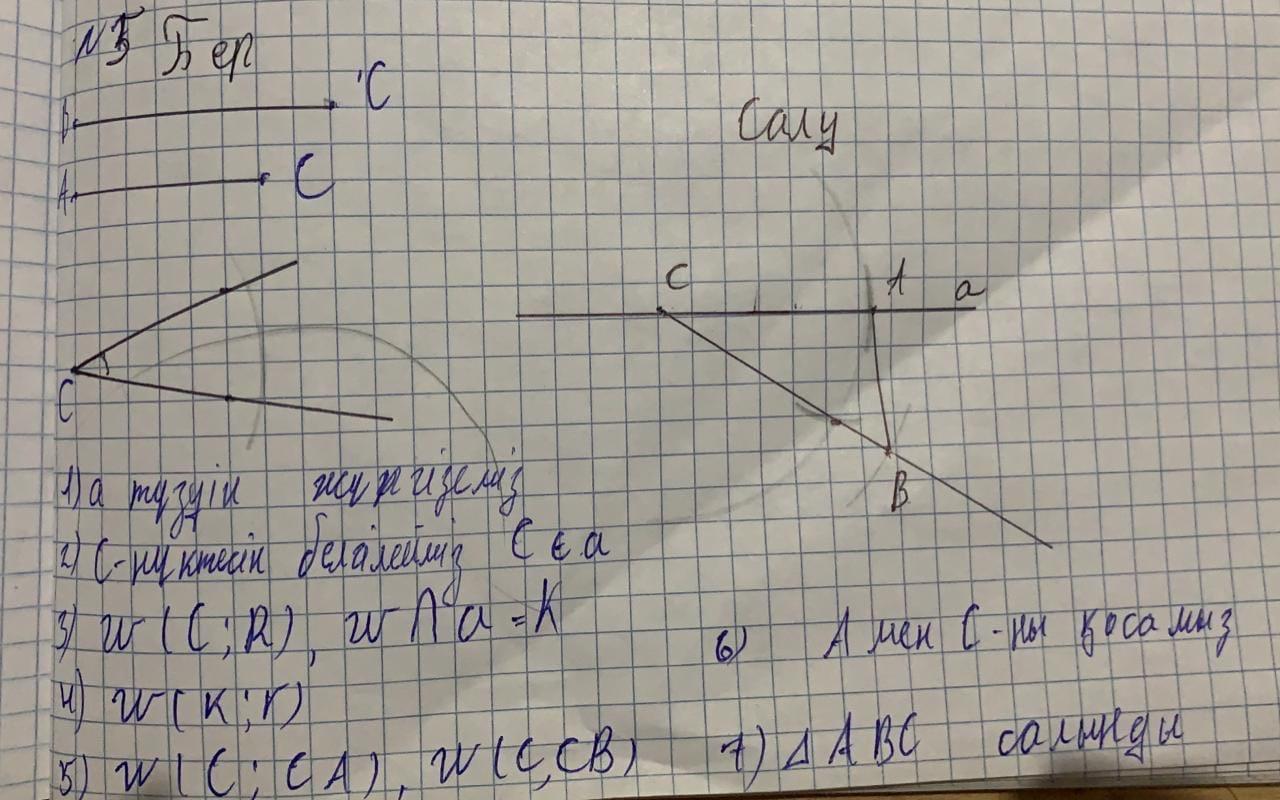 №5 Бер
B C
A C
C
Салу
C A a
B
1) a түзуін жүргіземіз
2) C-нүктесін белгілейміз C ∈ a
3) W (C; R), W ∩ a = K
4) W (K; r)
5) W (C; CA), W (C, CB)
6) A мен C-ны қосамыз
7) Δ ABC салынды